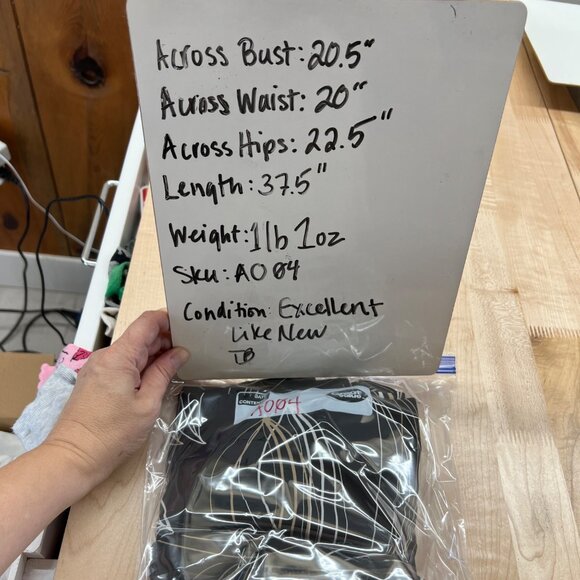 Across Bust: 20.5"
Across Waist: 20"
Across Hips: 22.5"
Length: 37.5"
Weight: 1lb 1oz
Sku: A004
Condition: Excellent
Like New
TB
A004